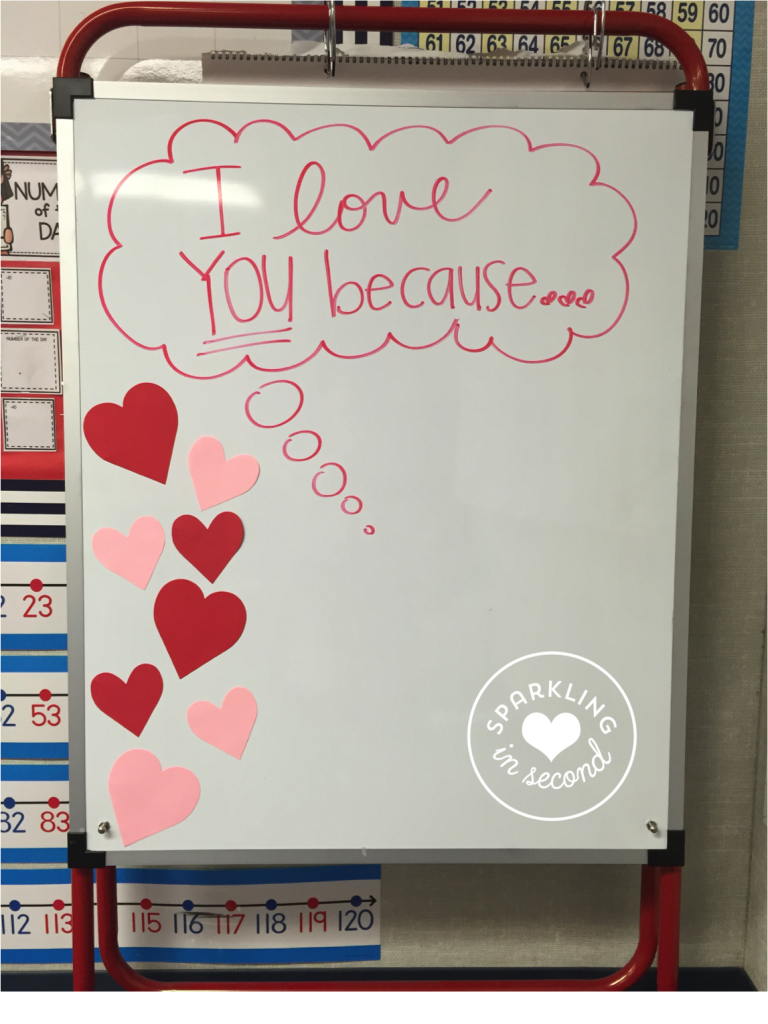 58 59 60
61 62 63 64 65 66 67 68 70
I love
YOU because...
NUM
of
DA
NUMBER OF THE DAY
23
53
82 83
112 113 115 116 117 118 119 120
SPARKLING
in second